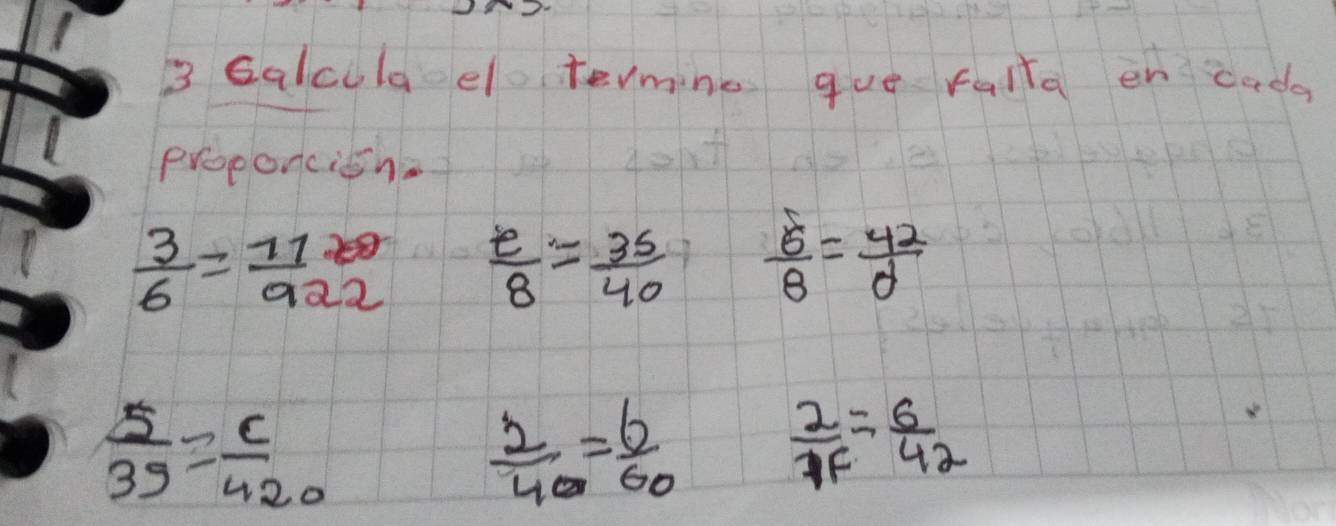 3 Calcula el termino que falta en cada
proporción.
3/6 = 11/a 22 e/8 = 35/40 6/8 = 42/d
5/35 = c/420 2/40 = b/60 2/f = 6/42